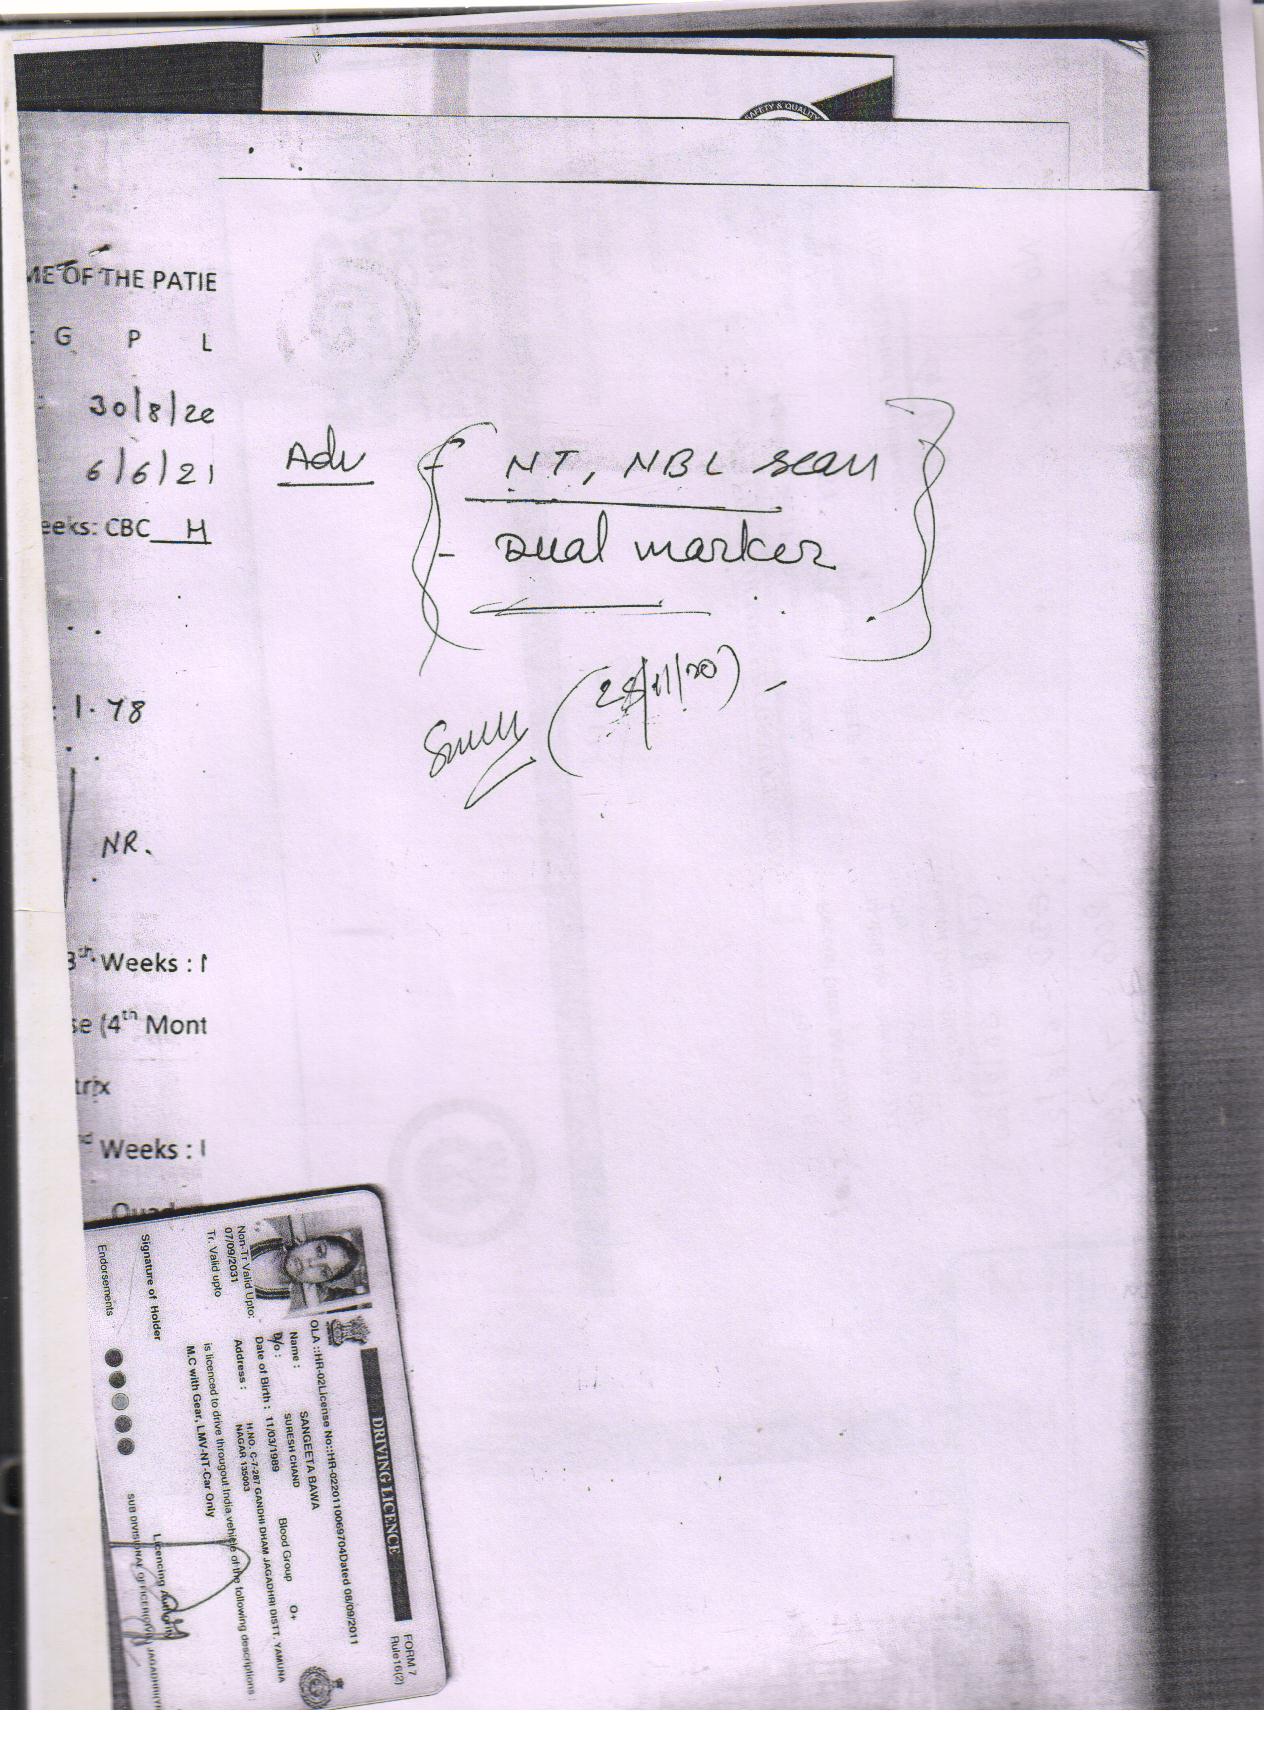 SAFETY & QUALITY
ME OF THE PATIE
: G P L
: 30/8/20
6/6/21
eeks: CBC H
Adv
- NT, NBL scan
- Dual marker
(28/11/20) -
: 1.78
NR.
3th Weeks : N
se (4th Mont
trix
nd Weeks : 
Quad
DRIVING LICENCE
FORM 7
Rule16(2)
OLA ::HR-02License No::HR-0220110069704Dated 08/09/2011
Name : SANGEETA BAWA
D/o : SURESH CHAND Blood Group O+
Date of Birth : 11/03/1989
Address : H.NO. C-7-287 GANDHI DHAM JAGADHRI DISTT. YAMUNA
NAGAR 135003
is licenced to drive througout India vehicle of the following descriptions :
M.C with Gear, LMV-NT-Car Only
Non-Tr Valid Upto:
07/09/2031
Tr. Valid upto
Signature of Holder
Licencing Authority
SUB DIVISIONAL OFFICER(CIVIL) JAGADHRI(Y
Endorsements